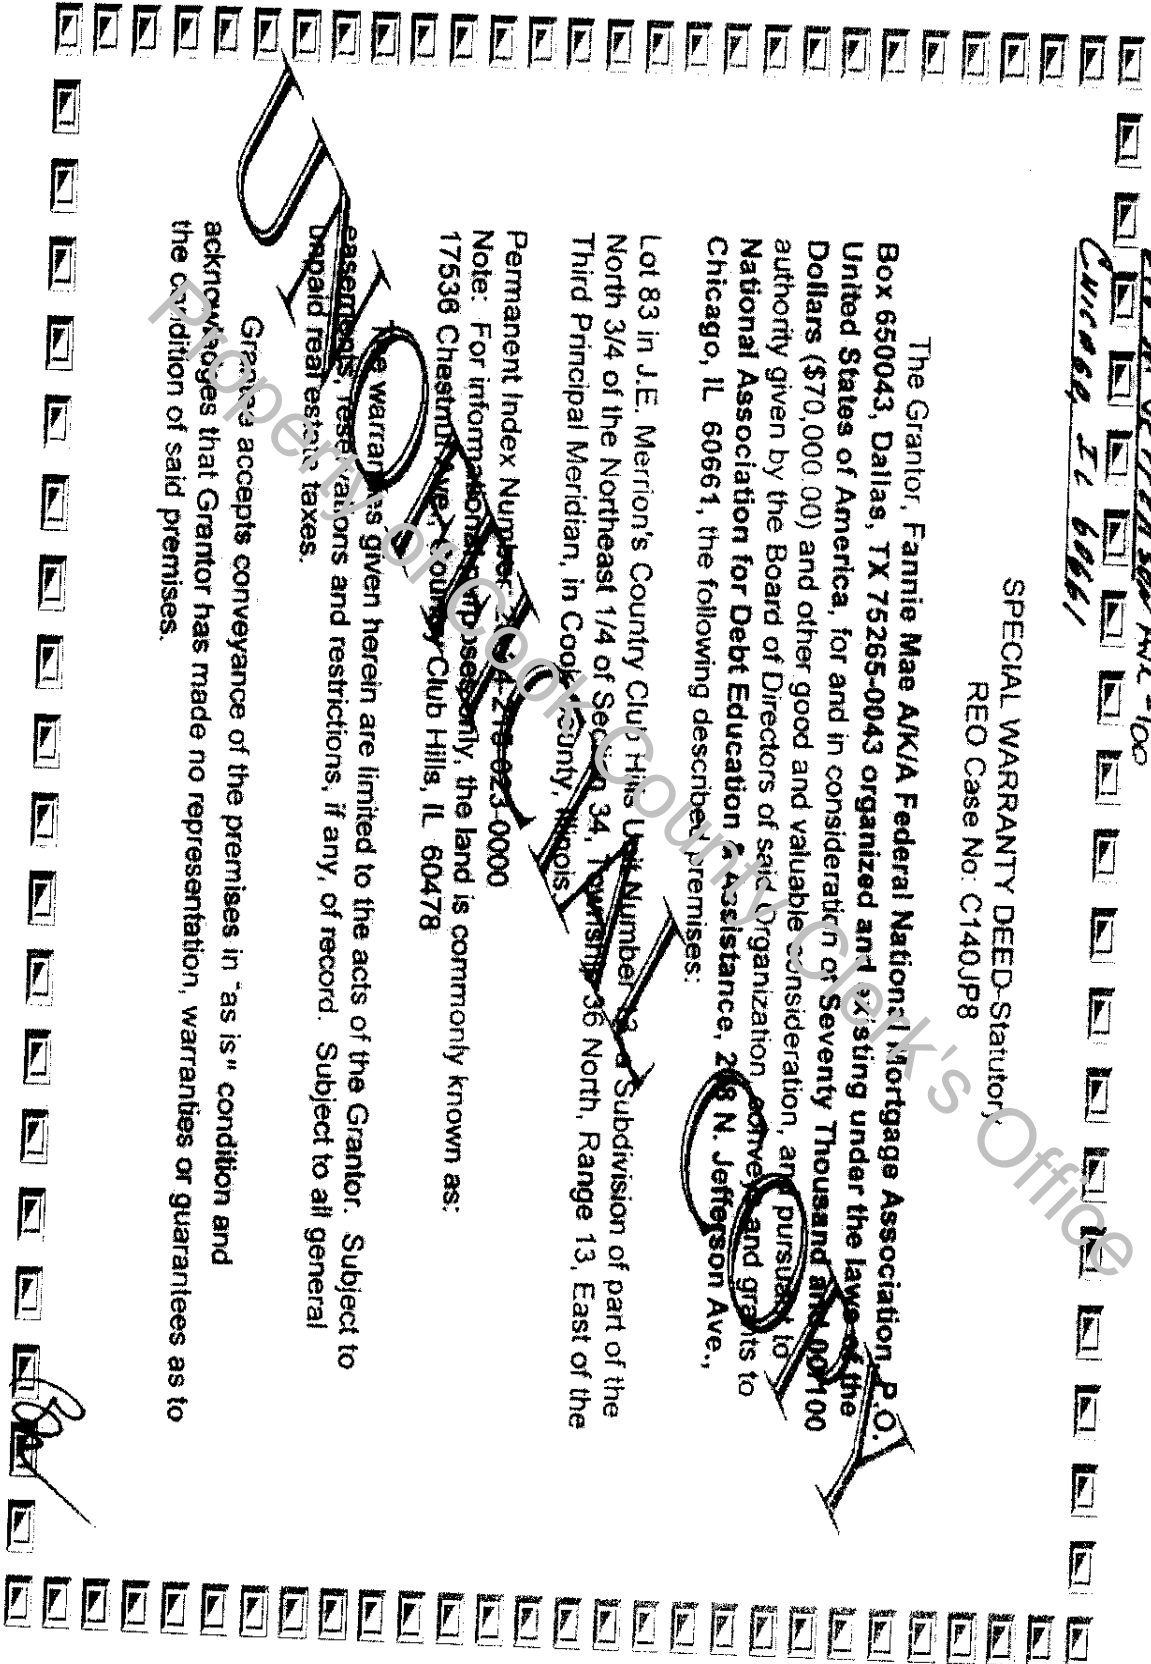 CHICAGO, IL 60661
SPECIAL WARRANTY DEED-Statutory
REO Case No: C140JP8
The Grantor, Fannie Mae A/K/A Federal National Mortgage Association, P.O.
Box 650043, Dallas, TX 75265-0043 organized and existing under the laws of the
United States of America, for and in consideration of Seventy Thousand and 00/100
Dollars ($70,000.00) and other good and valuable consideration, and pursuant to
authority given by the Board of Directors of said Organization, conveys and grants to
National Association for Debt Education & Assistance, N. Jefferson Ave.,
Chicago, IL 60661, the following described premises:
Lot 83 in J.E. Merrion's Country Club Hills Unit Number a Subdivision of part of the
North 3/4 of the Northeast 1/4 of Section 34, Township 36 North, Range 13, East of the
Third Principal Meridian, in Cook County, Illinois
Permanent Index Number: 023-0000
Note: For informational purposes only, the land is commonly known as:
17536 Chestnut Ave., Country Club Hills, IL 60478
The warranties given herein are limited to the acts of the Grantor. Subject to
easements, reservations and restrictions, if any, of record. Subject to all general
unpaid real estate taxes.
Grantee accepts conveyance of the premises in "as is" condition and
acknowledges that Grantor has made no representation, warranties or guarantees as to
the condition of said premises.
UNOFFICIAL COPY
Property of Cook County Clerk's Office